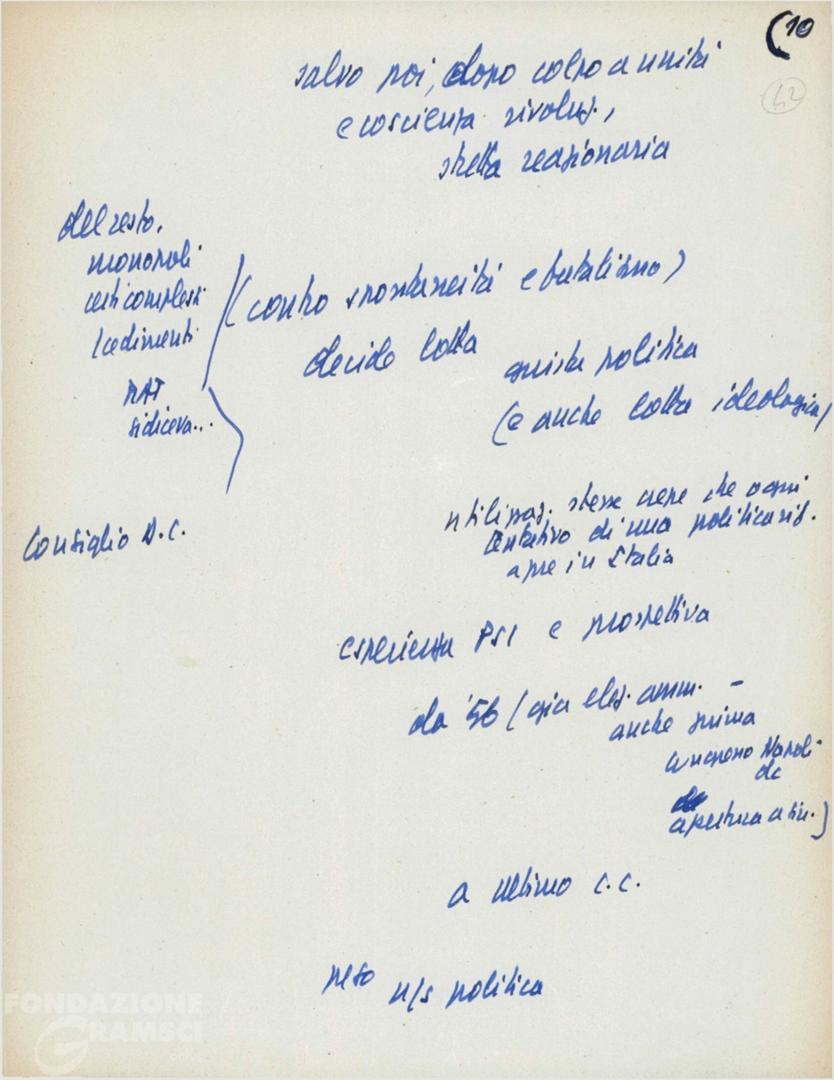 (10
42
salvo poi, dopo colpo a unità
e coscienza rivoluz.,
stretta reazionaria
del resto,
monopoli
certi complessi
(cedimenti
si diceva...
(contro spontaneità e fatalismo)
decide lotta
giusta politica
(e anche lotta ideologica)
utilizzaz. stesse crepe che ogni
tentativo di una politica rif.
apre in Italia
Consiglio D.C.
esperienza PSI e prospettiva
da '56 (già elez. amm. –
anche prima
congresso Napoli
dc
apertura a sin.)
a ultimo C.C.
peso n/s politica
FONDAZIONE
GRAMSCI